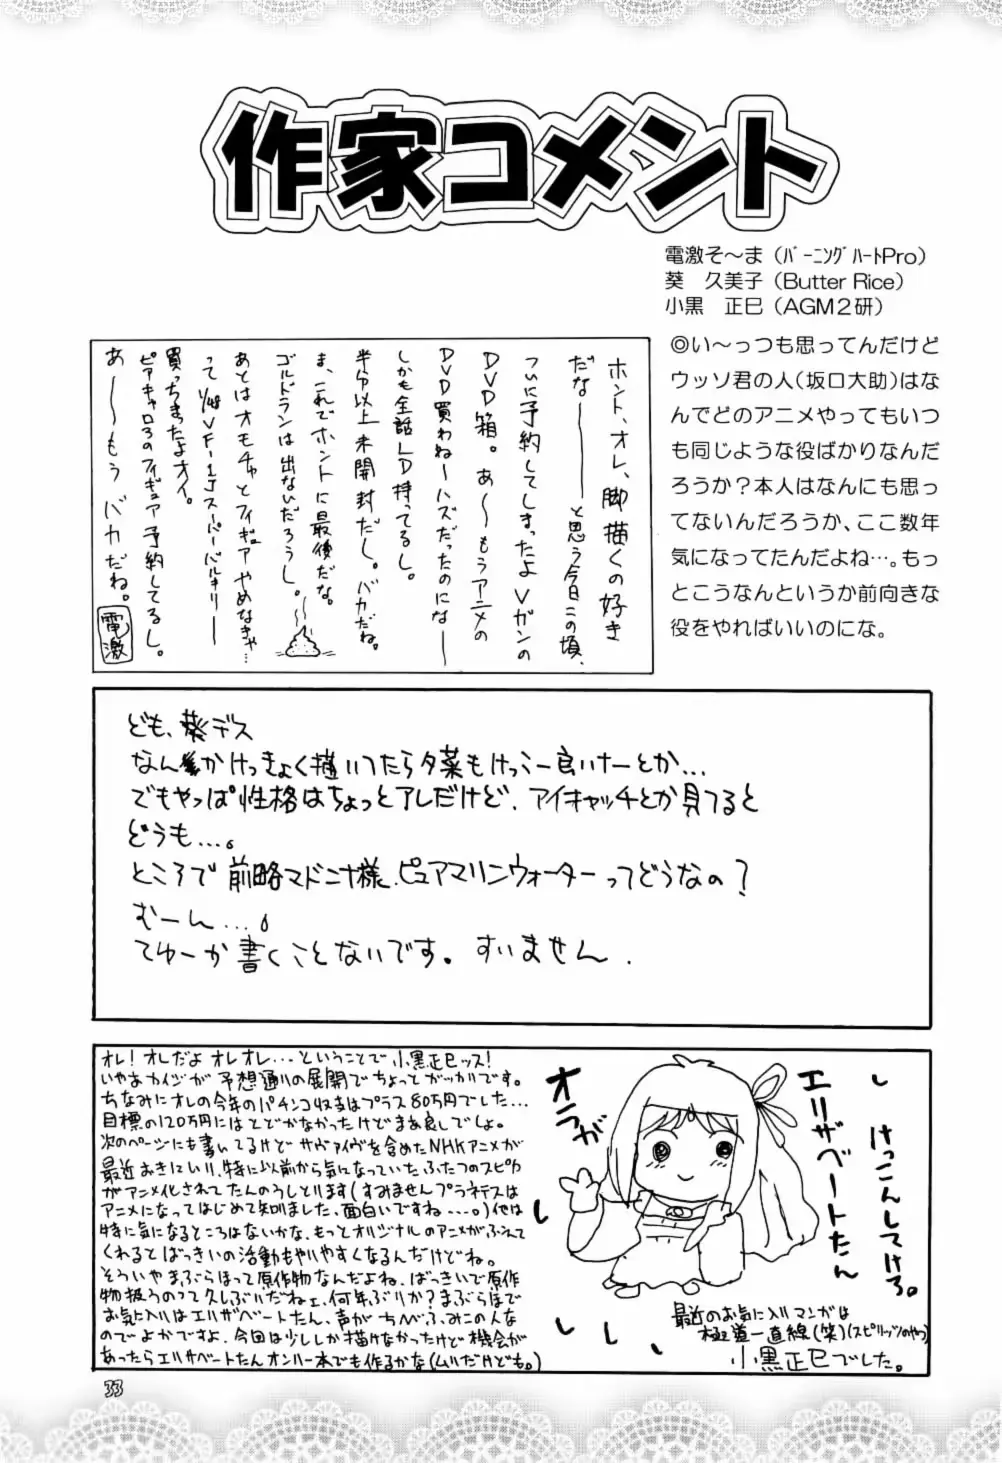 作家コメント
電激そ～ま（ﾊﾞｰﾆﾝｸﾞﾊｰﾄPro）
葵　久美子（Butter Rice）
小黒　正巳（AGM２研）
◎い～っつも思ってんだけど
ウッソ君の人（坂口大助）はな
んでどのアニメやってもいつ
も同じような役ばかりなんだ
ろうか？本人はなんにも思っ
てないんだろうか、ここ数年
気になってたんだよね…。もっ
とこうなんというか前向きな
役をやればいいのにな。
ホント、オレ、脚描くの好き
だな―――と思う今日この頃、
ついに予約してしまったよVガンの
DVD箱。あ～～もうアニメの
DVD買わねーハズだったのにな――
しかも全話LD持ってるし。
半分以上未開封だし。バカだね。
ま、これでホントに最後だな。
ゴルドランは出ないだろうし。
あとはオモチャとフィギュアやめなきゃ…
って1/48VF-1Jスーパーバルキリー――
買っちまったよオイ。
ピアキャロ3のフィギュア予約してるし。
あ――もうバカだね。
電激
ども、葵デス
なんかけっきょく描いてたら夕菜もけっこー良いナーとか…
でもやっぱ性格はちょっとアレだけど、アイキャッチとか見てると
どうも…。
ところで前略マドンナ様、ピュアマリンウォーターってどうなの？
むーん…。
てゆーか書くことないです。すいません.
オレ！オレだよオレオレ…ということで小黒正巳ッス！
いやあカイジが予想通りの展開でちょっとガッカリです。
ちなみにオレの今年のパチンコ収支はプラス80万円でした…
目標の120万円にはとどかなかったけどまあ良しでしょ。
次のページにも書いてるけどサヴァイヴを含めたNHKアニメが
最近おきにいり、特に以前から気になっていたふたつのスピカ
がアニメ化されてたんのうしとります（すみませんプラネテスは
アニメになってはじめて知りました、面白いですね…。）他は
特に気になるところはないかな、もっとオリジナルのアニメがふえて
くれるとばっきぃの活動もやりやすくなるんだけどね。
そういやまぶらほって原作物なんだよね、ばっきぃで原作
物扱うのって久しぶりだねェ、何年ぶりか？まぶらほで
お気に入りはエリザベートたん、声がちべふぉみこの人な
のでよかですよ、今回は少ししか描けなかったけど機会が
あったらエリザベートたんオンリー本でも作るかな（ムリだけども。）
エリザベートたん
けっこんしてけろ。
オラが
最近のお気に入りマンガは
極道一直線（笑）（スピリッツのやつ）
小黒正巳でした。
33